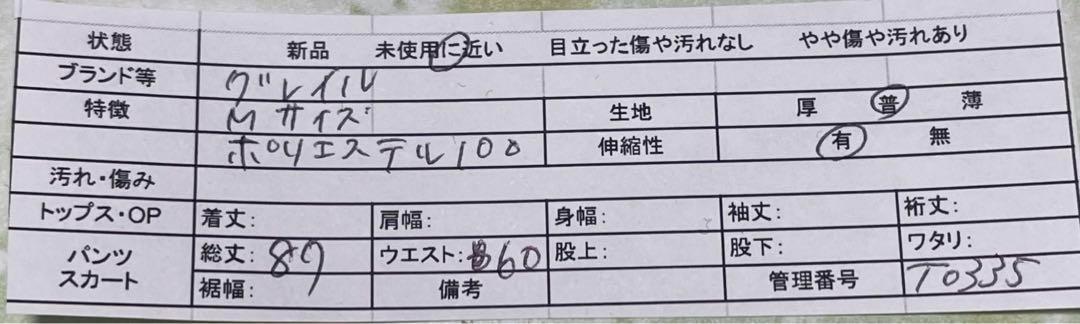 状態 新品 未使用に近い 目立った傷や汚れなし やや傷や汚れあり
ブランド等 グレイル
特徴 Mサイズ 生地 厚 普 薄
ポリエステル100 伸縮性 有 無
汚れ・傷み
トップス・OP 着丈: 肩幅: 身幅: 袖丈: 裄丈:
パンツ 総丈: 89 ウエスト: 60 股上: 股下: ワタリ:
スカート 裾幅: 備考 管理番号 T0335